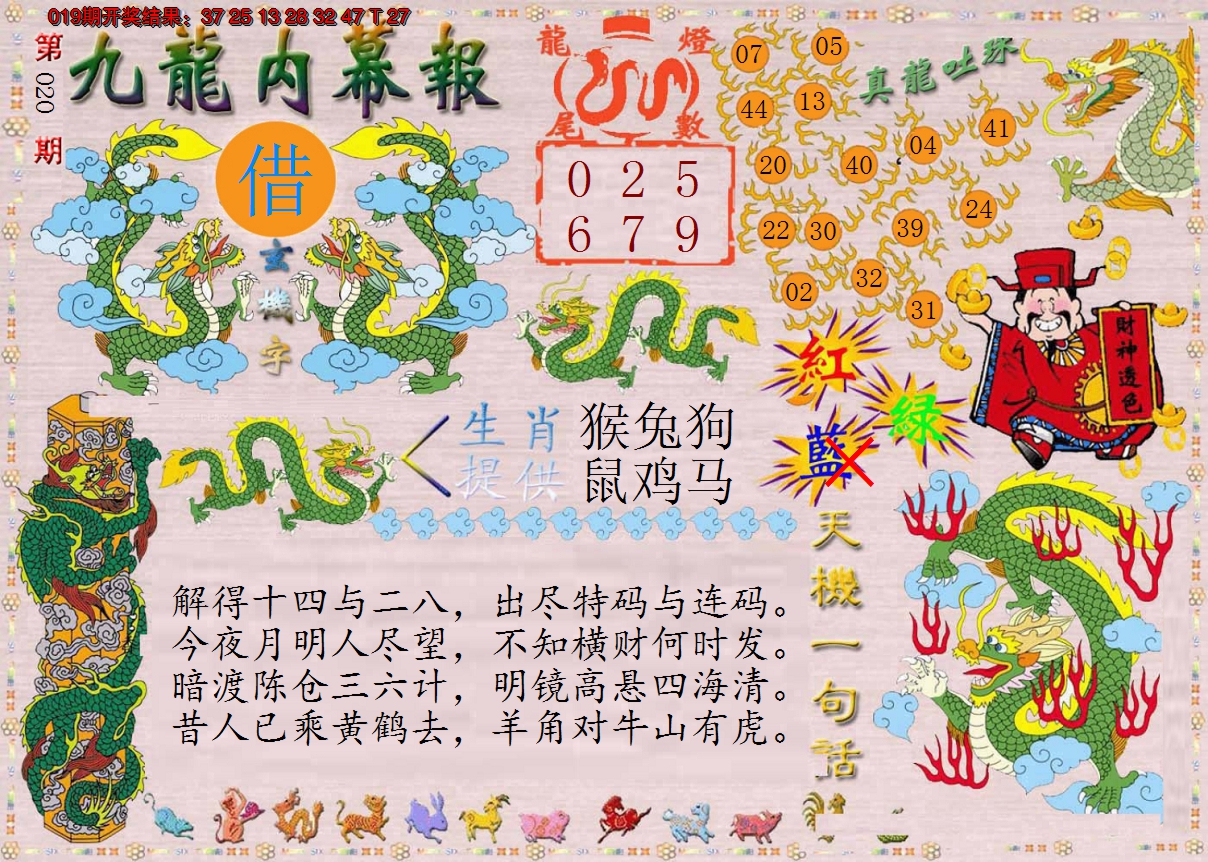 019期开奖结果：37 25 13 28 32 47 T 27
第020期
九龍内幕報
借
玄機字
龍燈
尾數
0 2 5
6 7 9
真龍吐珠
07 05
44 13
04 41
20 40
24
22 30 39
02 32
31
財神透色
紅
綠
藍
生肖 猴兔狗
提供 鼠鸡马
天機一句话
解得十四与二八，出尽特码与连码。
今夜月明人尽望，不知横财何时发。
暗渡陈仓三六计，明镜高悬四海清。
昔人已乘黄鹤去，羊角对牛山有虎。